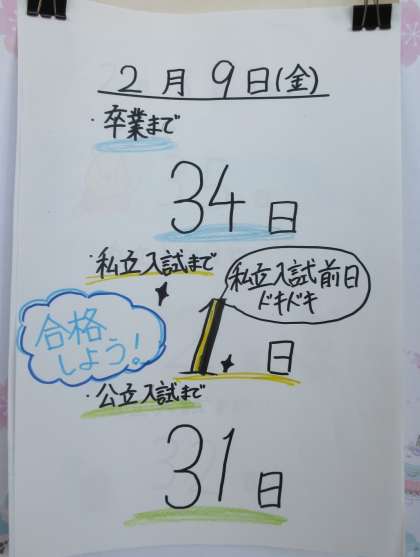 2月9日(金)
・卒業まで
34日
・私立入試まで
私立入試前日
ドキドキ
1日
合格
しよう!
・公立入試まで
31日